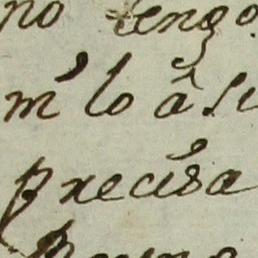 no tengo
m' lo â si
precisa